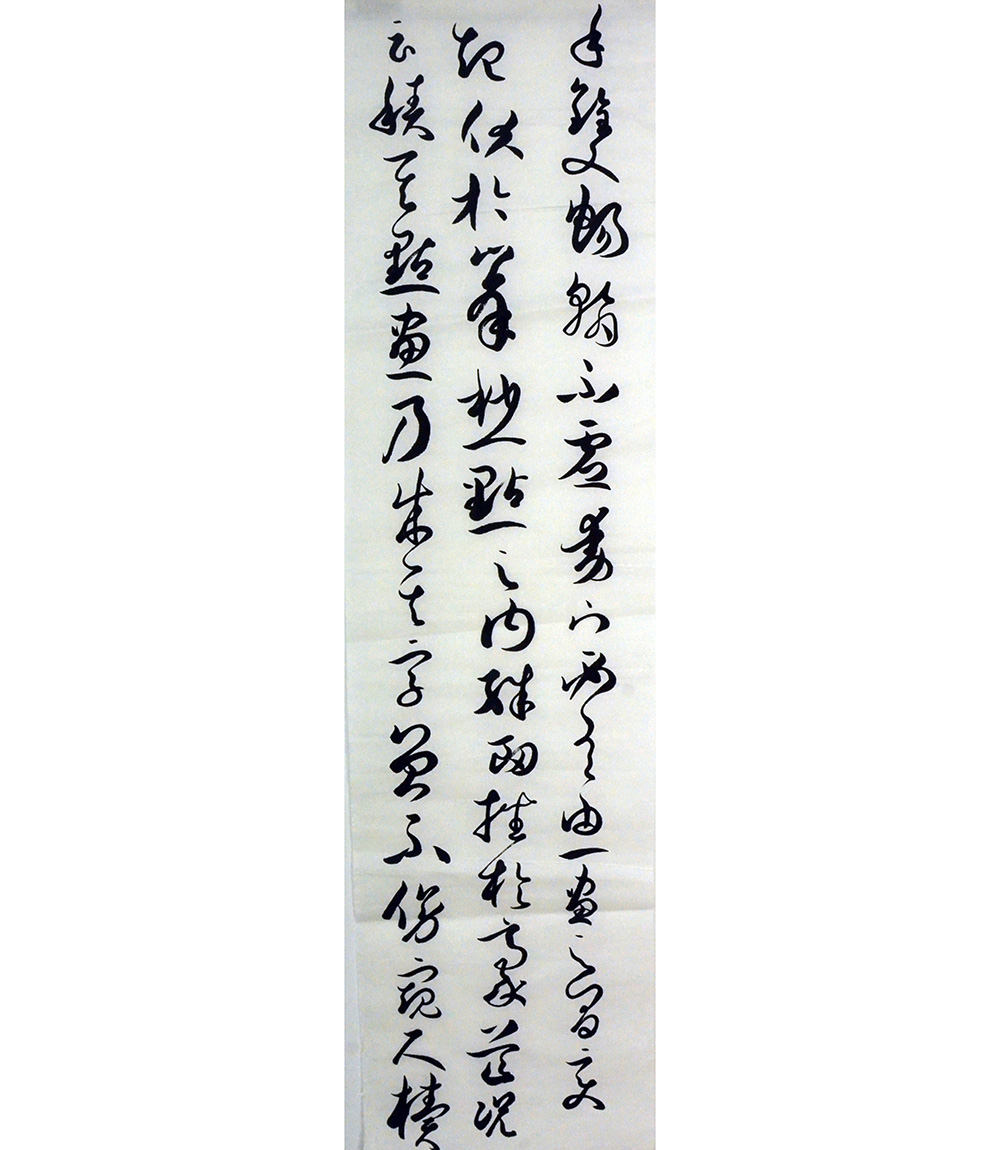 手雙暢翰不虛動下必有由一畫之間變
起伏於峯杪一點之內殊衄挫於豪芒況
云積其點畫乃成其字曾不傍窺尺櫝